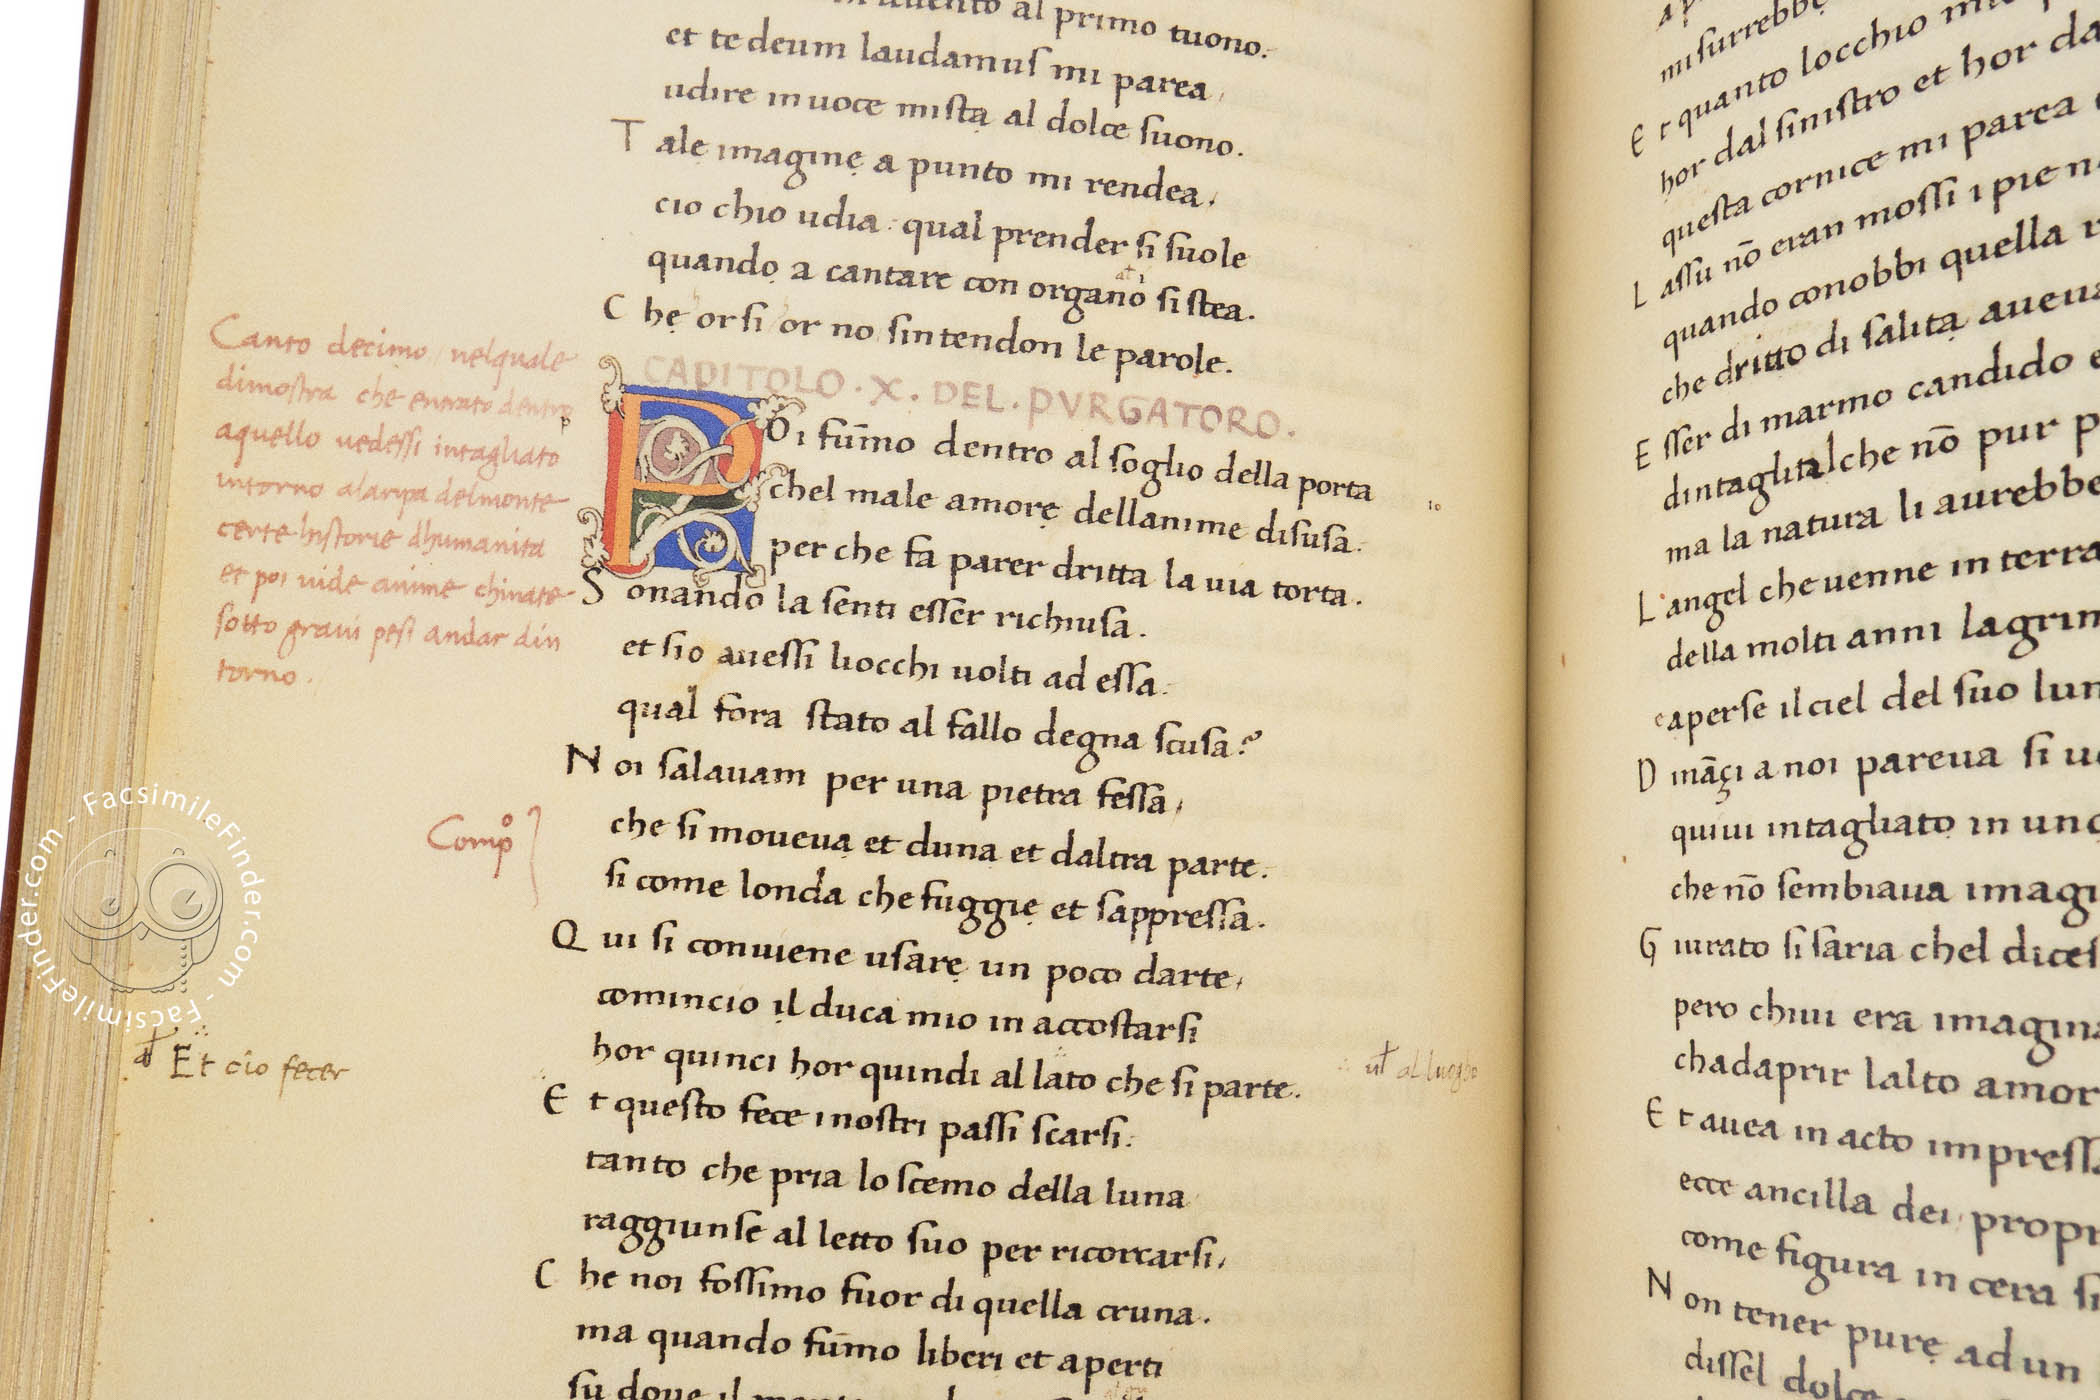 al primo tuono.
et te deum laudamus mi parea,
udire in uoce mista al dolce suono.
Tale imagine a punto mi rendea,
cio chio udia: qual prender si suole
quando a cantare con organo si stea.
Che or si or no sintendon le parole.
CAPITOLO. X. DEL. PVRGATORO.
Poi fum̄o dentro al soglio della porta
chel male amore dellanime disusa.
per che fa parer dritta la uia torta.
Sonando la senti esser richiusa.
et sio auessi liocchi uolti ad essa.
qual fora stato al fallo degna scusa?
Noi salauam per una pietra fessa,
che si moueua et duna et daltra parte.
si come londa che fuggie et sappressa.
Qui si conuiene usare un poco darte,
comincio il duca mio in accostarsi
hor quinci hor quindi al lato che si parte.
Et questo fece i nostri passi scarsi.
tanto che pria lo scemo della luna
raggiunse al letto suo per ricorcarsi,
Che noi fossimo fuor di quella cruna.
ma quando fum̄o liberi et aperti
su doue il
Canto decimo nelquale
dimostra che entrato dentro
aquello uedessi intagliato
intorno alaripa delmonte
certe historie dhumanita
et poi uide anime chinate
sotto graui pesi andar din
torno.
Compº
Et cio fecer
al luogho
10
misurrebbe
Et quanto locchio
hor dal sinistro et hor da
questa cornice mi parea
Lassu nō eran mossi i pie
quando conobbi quella
che dritto di salita aueua
Esser di marmo candido
dintagli tal che nō pur
ma la natura li aurebbe
Langel che uenne in terra
della molti anni lagrim
aperse il ciel del suo lun
Dināçi a noi pareua si
quiui intagliato in uno
che nō sembiaua imagi
Giurato si saria chel dices
pero chiui era imagina
chadaprir lalto amor
Et auea in acto impressa
ecce ancilla dei propr
come figura in cera si
Non tener pure ad un
dissel dolce
FacsimileFinder.com - FacsimileFinder.com - FacsimileFinder.com